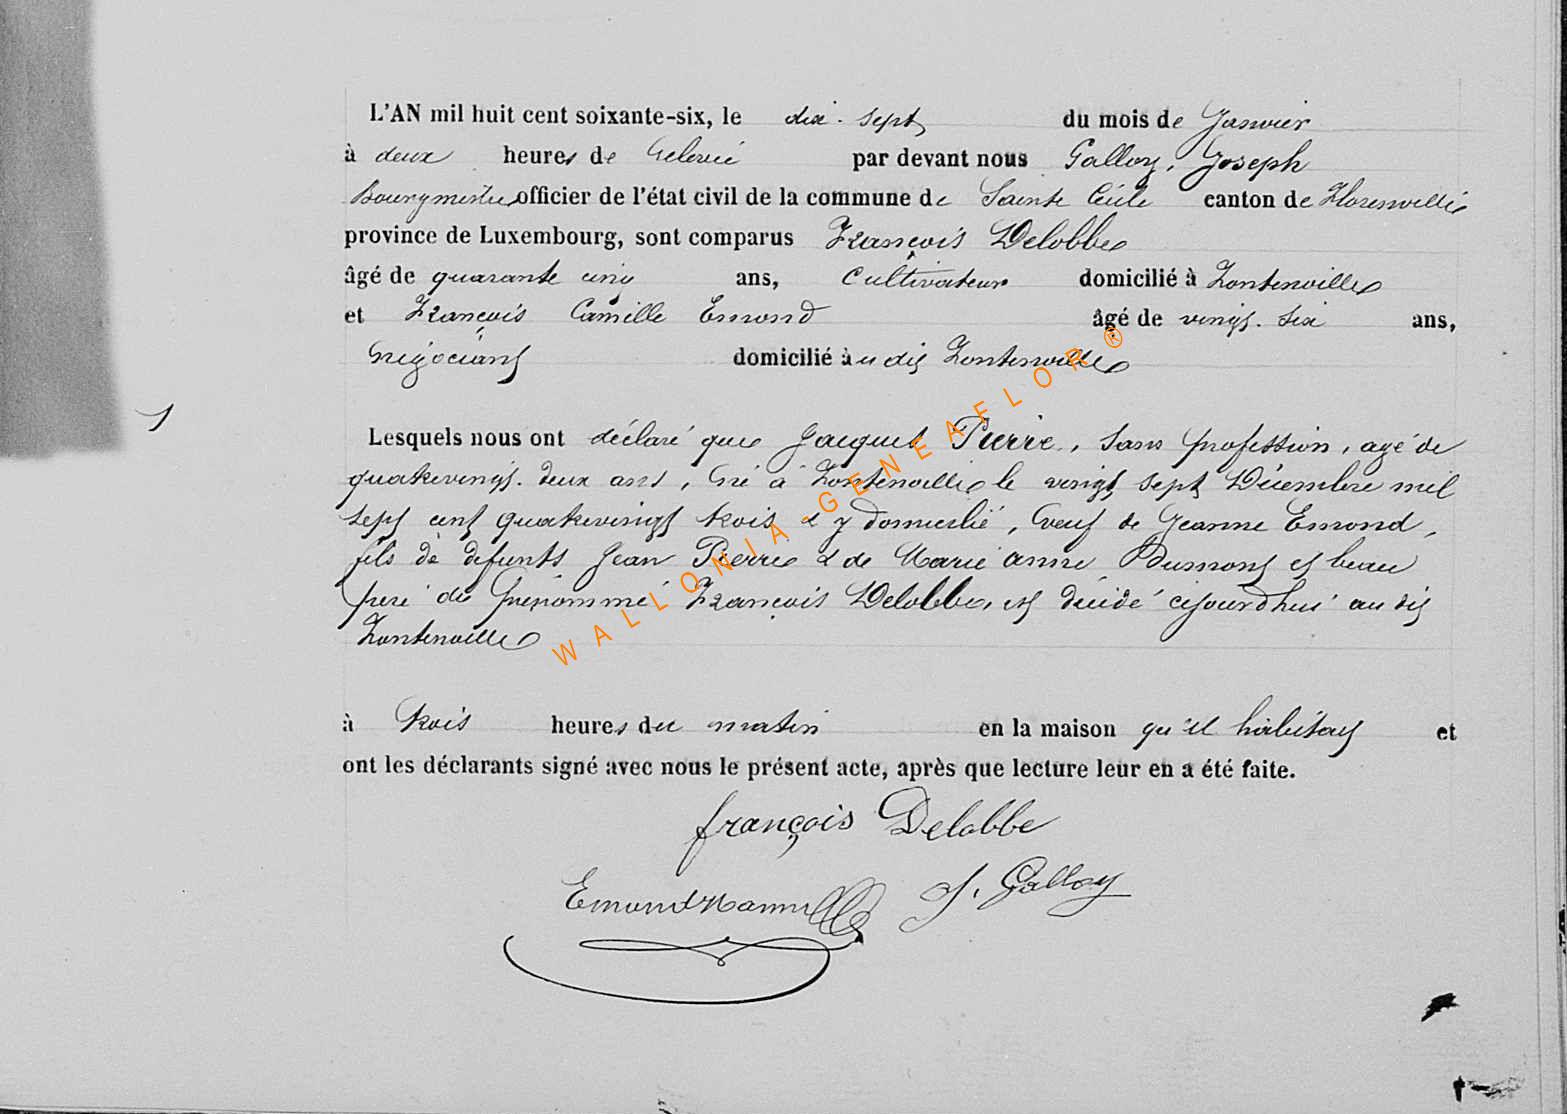 L'AN mil huit cent soixante-six, le dix-sept du mois de Janvier
à deux heures de relevée par devant nous Galloy, Joseph
Bourgmestre officier de l'état civil de la commune de Sainte Cécile canton de Florenville
province de Luxembourg, sont comparus François Delobbe
âgé de quarante cinq ans, Cultivateur domicilié à Fontenoille
et François Camille Emond âgé de vingt-six ans,
Négociant domicilié au dit Fontenoille
Lesquels nous ont déclaré que Jacques Pierre, sans profession, agé de
quatrevingt-deux ans, né à Fontenoille le vingt sept Décembre mil
sept cent quatrevingt trois & y domicilié, veuf de Jeanne Emond,
fils de défunts Jean Pierre & de Marie anne Dumont et beau
père du prénommé François Delobbe, est décédé cejourd'hui au dit
Fontenoille
à trois heures du matin en la maison qu'il habitait et
ont les déclarants signé avec nous le présent acte, après que lecture leur en a été faite.
françois Delobbe
Emond J. Galloy
WALLONIA-GENEAFLOR ®